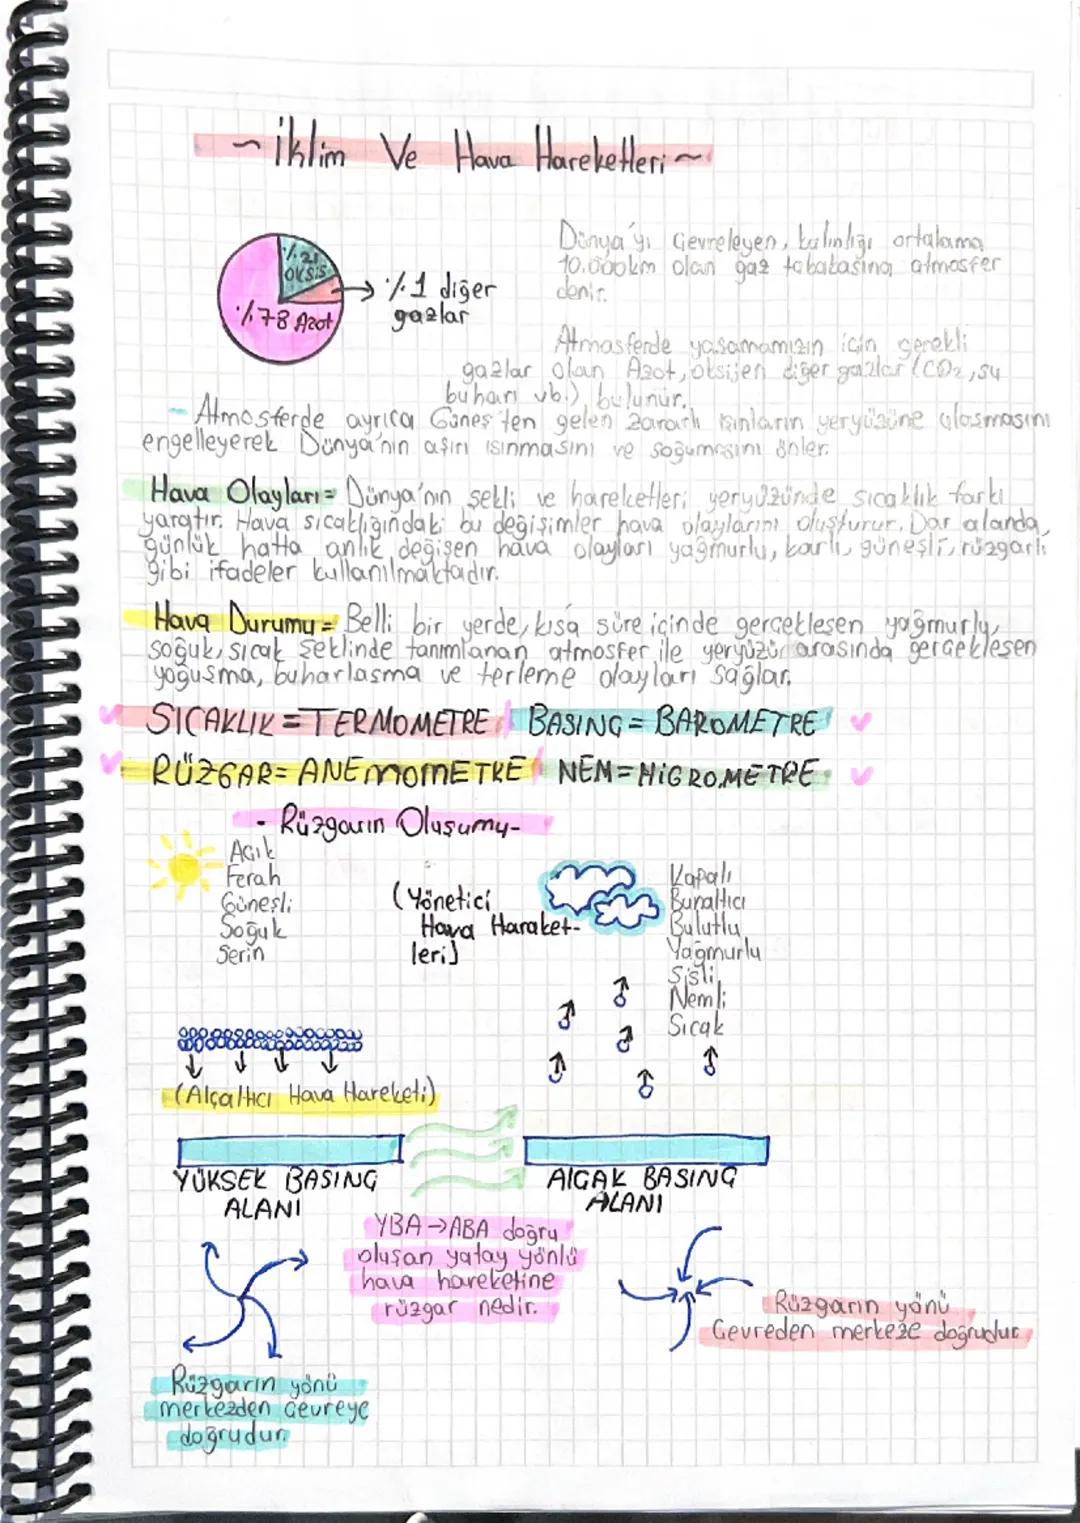 ~ İklim Ve Hava Hareketleri ~
%21
OKSİS
%78 Azot
→ %1 diğer
gazlar
Dünya'yı Çevreleyen, kalınlığı ortalama
10.000km olan gaz tabakasına atmosfer
denir.
Atmosferde yaşamamızın için gerekli
gazlar olan Azot, oksijen diğer gazlar (CO2, su
buharı vb.) bulunur.
- Atmosferde ayrıca Güneş'ten gelen zararlı ışınların yeryüzüne ulaşmasını
engelleyerek Dünya'nın aşırı ısınmasını ve soğumasını önler.
Hava Olayları = Dünya'nın şekli ve hareketleri yeryüzünde sıcaklık farkı
yaratır. Hava sıcaklığındaki bu değişimler hava olaylarını oluşturur. Dar alanda,
günlük hatta anlık değişen hava olayları yağmurlu, karlı, güneşli, rüzgarlı
gibi ifadeler kullanılmaktadır.
Hava Durumu = Belli bir yerde, kısa süre içinde gerçekleşen yağmurlu,
soğuk, sıcak şeklinde tanımlanan atmosfer ile yeryüzü arasında gerçekleşen
yoğuşma, buharlaşma ve terleme olayları sağlar.
SICAKLIK = TERMOMETRE BASINÇ = BAROMETRE
RÜZGAR = ANEMOMETRE NEM = HİGROMETRE
- Rüzgarın Oluşumu -
Açık
Ferah
Güneşli
Soğuk
Serin
(Yönetici
Hava Haraket-
leri)
Kapalı
Bunaltıcı
Bulutlu
Yağmurlu
Sisli
Nemli
Sıcak
(Alçaltıcı Hava Hareketi)
YÜKSEK BASINÇ
ALANI
AlÇAK BASINÇ
ALANI
YBA → ABA doğru
oluşan yatay yönlü
hava hareketine
rüzgar nedir.
Rüzgarın yönü
Çevreden merkeze doğrudur
Rüzgarın yönü
merkezden çevreye
doğrudur.